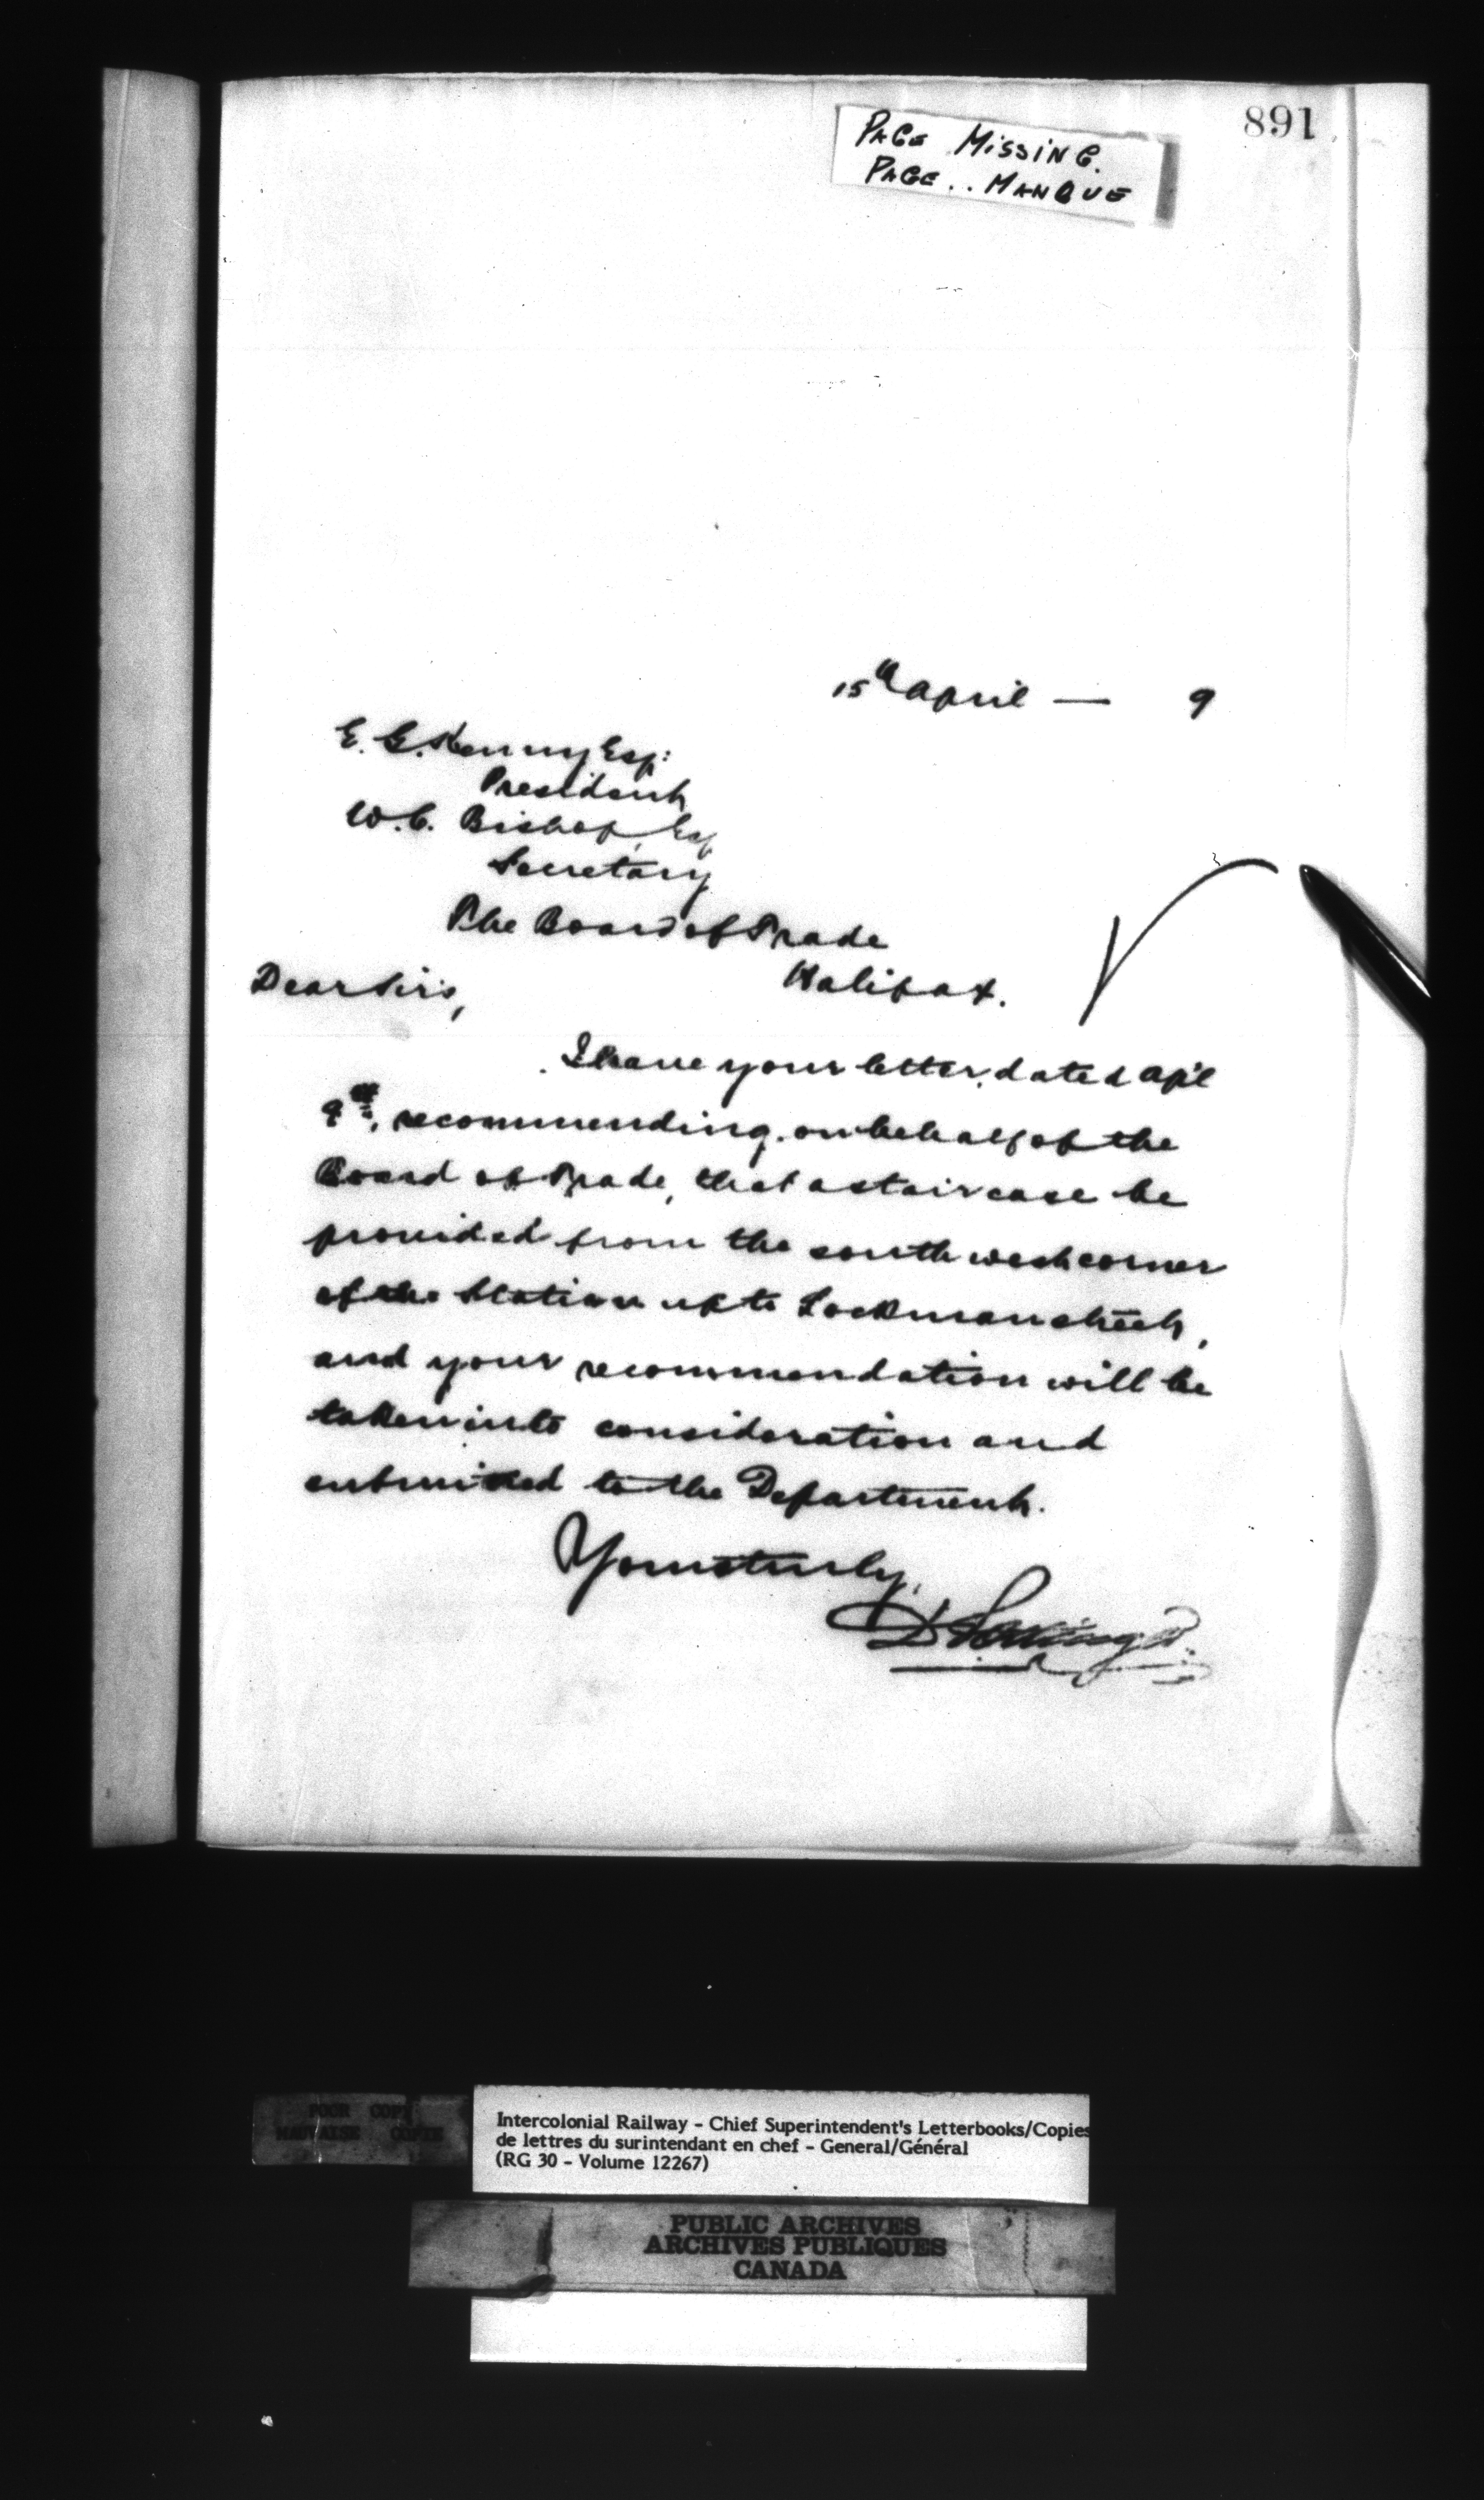 891
PAGE MISSING.
PAGE.. MANQUE
15th April — 9
E. G. Kenny Esq:
President
W. C. Bishop, Esq
Secretary
The Board of Trade
Halifax.
Dear Sirs,
I have your letter, dated Ap'l
9th, recommending, on behalf of the
Board of Trade, that a staircase be
provided from the south west corner
of the Station up to Lockman street,
and your recommendation will be
taken into consideration and
submitted to the Department.
Yours truly,
D Pottinger
POOR COPY
MAUVAISE COPIE
Intercolonial Railway - Chief Superintendent's Letterbooks/Copies
de lettres du surintendant en chef - General/Général
(RG 30 - Volume 12267)
PUBLIC ARCHIVES
ARCHIVES PUBLIQUES
CANADA